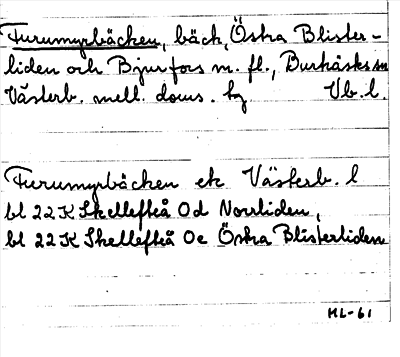 Furumyrbäcken, bäck, Östra Blister-
liden och Bjurfors m. fl., Burträsks sn
Västerb. mell. doms. hg Vb. l.
Furumyrbäcken ek Västerb. l
bl 22 K Skellefteå 0d Norrliden,
bl 22 K Skellefteå 0e Östra Blisterliden
HL-61